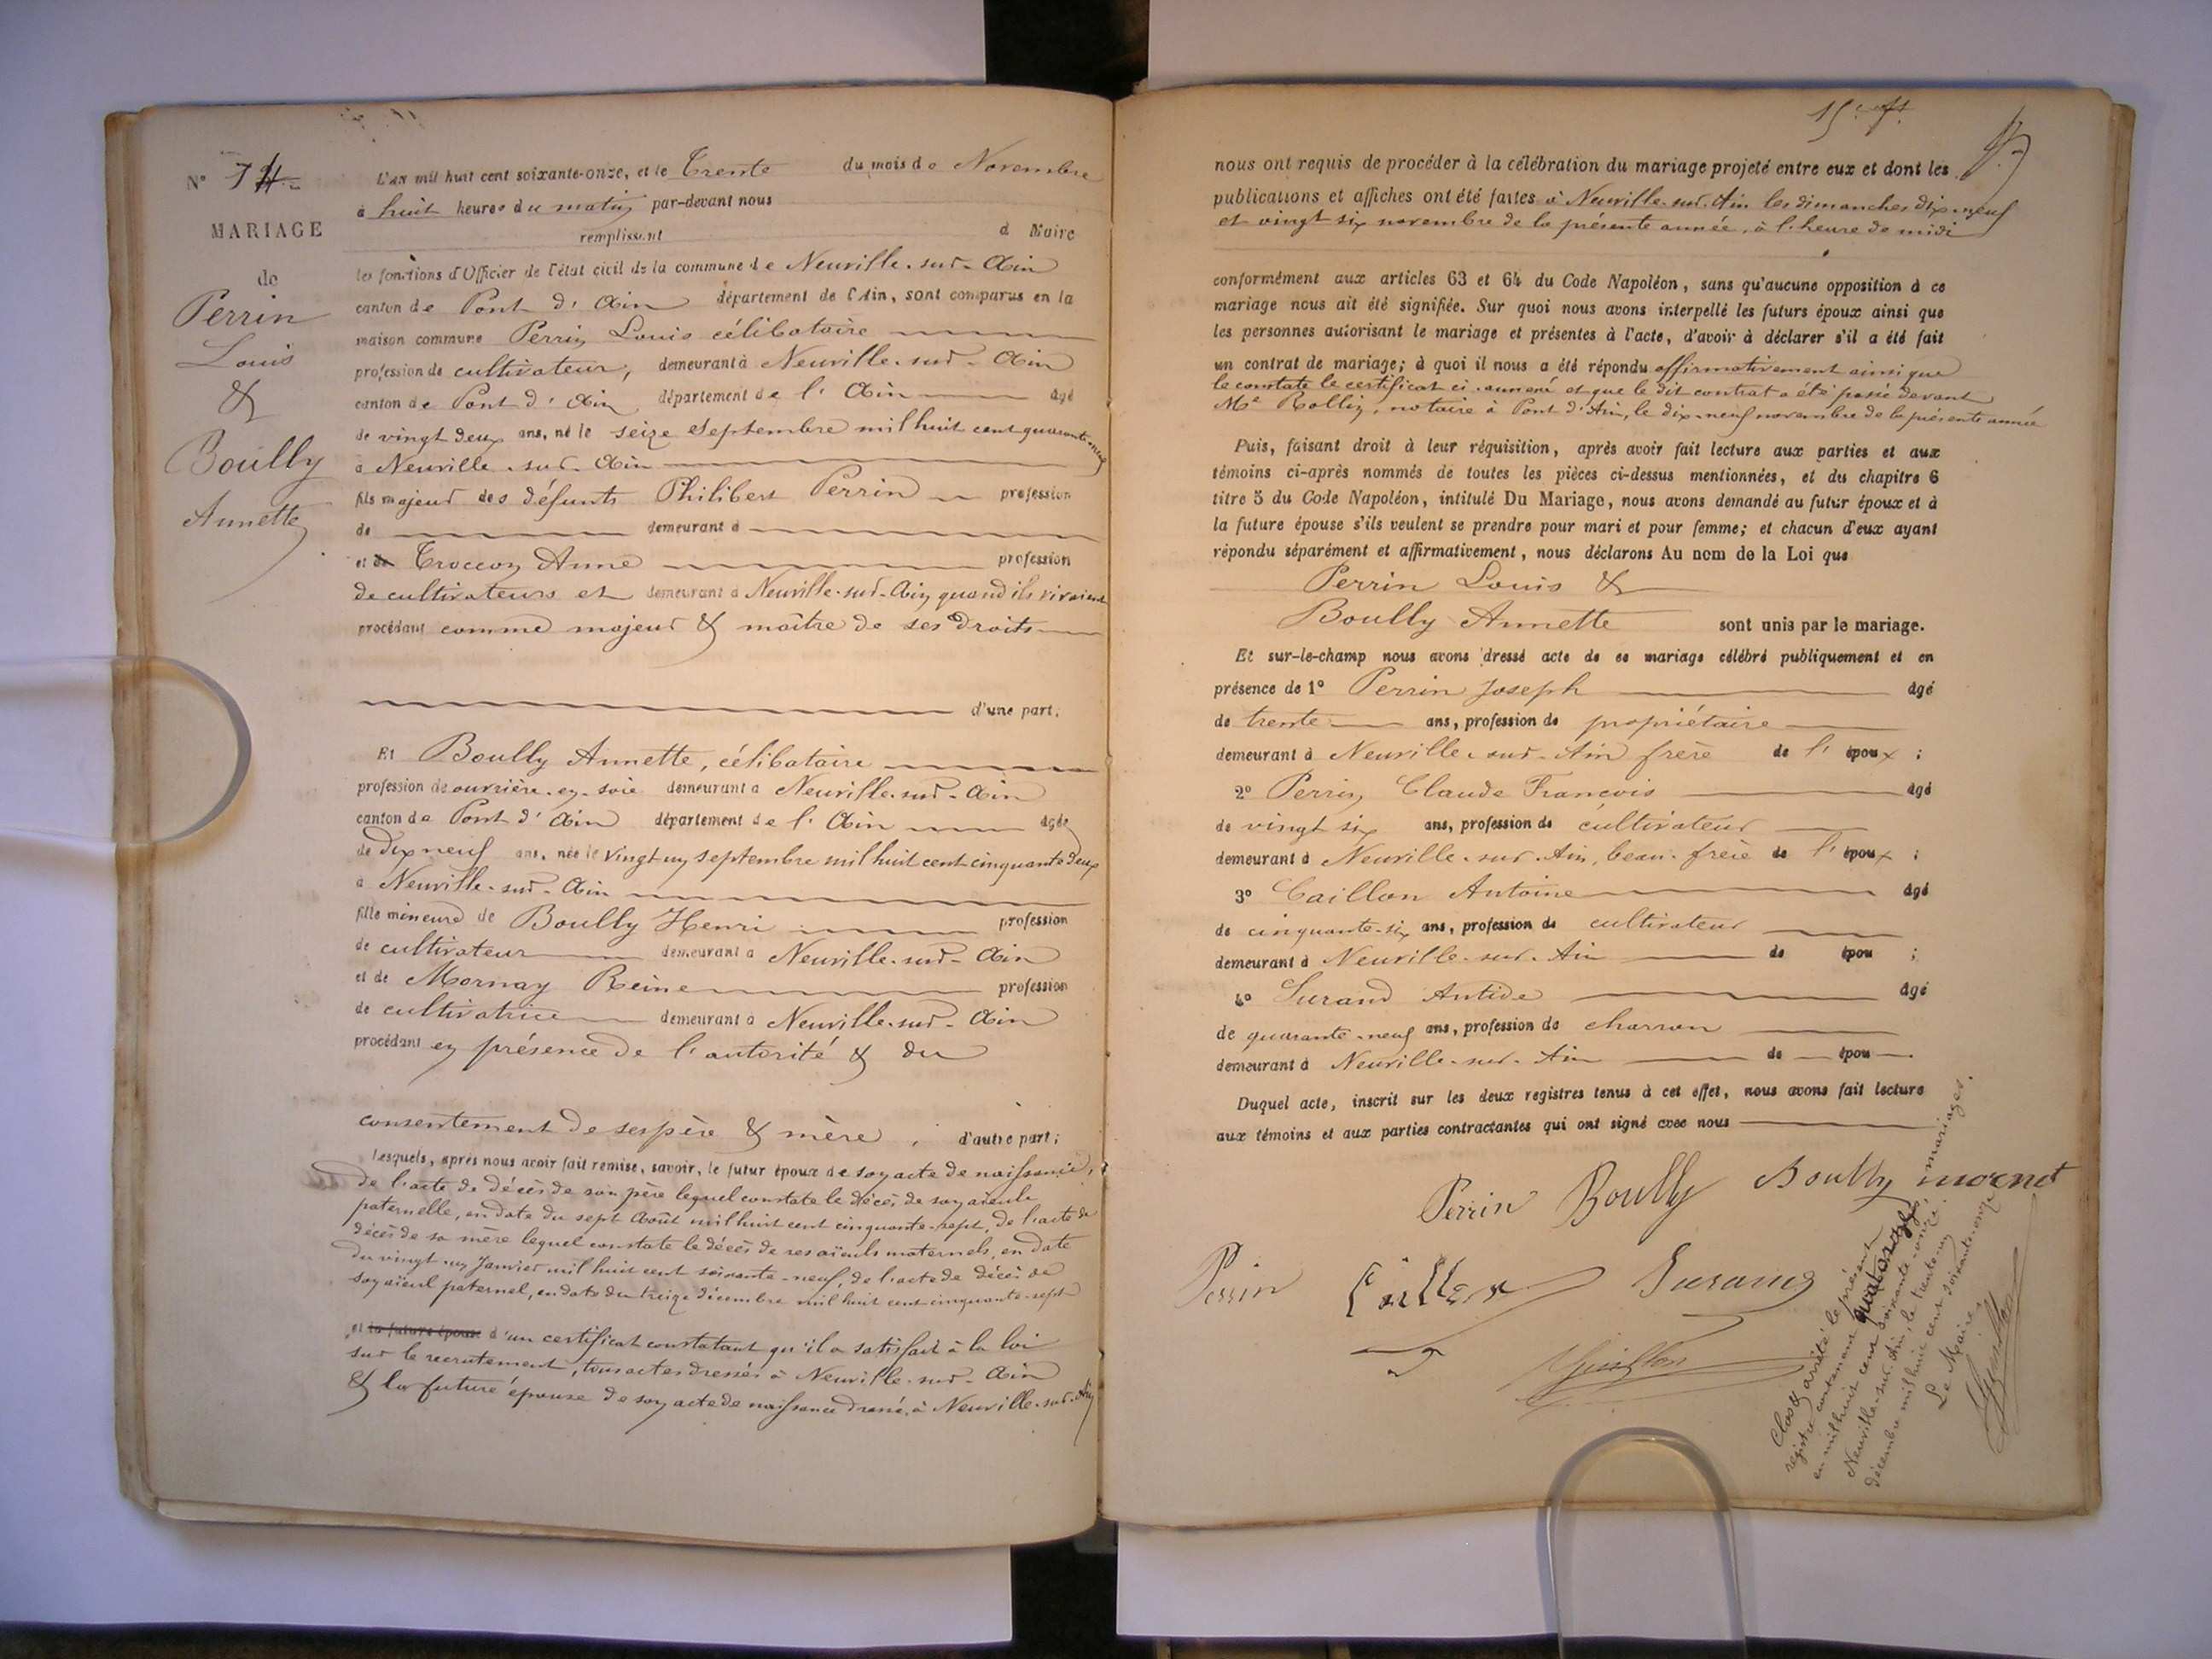 N° 14
MARIAGE
de
Perrin
Louis
&
Boully
Annette
L'an mil huit cent soixante-onze, et le Trente du mois de Novembre
à huit heures du matin par-devant nous
remplissant d Maire
les fonctions d'Officier de l'état civil de la commune de Neuville-sur-Ain
canton de Pont d'Ain département de l'Ain, sont comparus en la
maison commune Perrin Louis célibataire
profession de cultivateur, demeurant à Neuville-sur-Ain
canton de Pont d'Ain département de l'Ain âgé
de vingt deux ans, né le seize Septembre mil huit cent quarante-neuf
à Neuville-sur-Ain
fils majeur des défunts Philibert Perrin profession
de demeurant à
et de Troccon Anne profession
de cultivateurs et demeurant à Neuville-sur-Ain quand ils vivaient
procédant comme majeur & maître de ses droits
d'une part;
Et Boully Annette, célibataire
profession de ouvrière-en-soie demeurant à Neuville-sur-Ain
canton de Pont d'Ain département de l'Ain âgée
de dix neuf ans, née le vingt un septembre mil huit cent cinquante deux
à Neuville-sur-Ain
fille mineure de Boully Henri profession
de cultivateur demeurant à Neuville-sur-Ain
et de Mornay Reine profession
de cultivatrice demeurant à Neuville-sur-Ain
procédant en présence de l'autorité & du
consentement de ses père & mère, d'autre part;
lesquels, après nous avoir fait remise, savoir, le futur époux de son acte de naissance,
de l'acte de décès de son père lequel constate le décès de son aïeule
paternelle, en date du sept Août mil huit cent cinquante-sept, de l'acte de
décès de sa mère lequel constate le décès de ses aïeuls maternels, en date
du vingt un Janvier mil huit cent soixante-neuf, de l'acte de décès de
son aïeul paternel, en date du treize décembre mil huit cent cinquante-sept
et la future épouse d'un certificat constatant qu'il a satisfait à la loi
sur le recrutement, tous actes dressés à Neuville-sur-Ain
& la future épouse de son acte de naissance dressé à Neuville-sur-Ain
15e
nous ont requis de procéder à la célébration du mariage projeté entre eux et dont les
publications et affiches ont été faites à Neuville-sur-Ain les dimanches dix-neuf
et vingt six novembre de la présente année, à l'heure de midi
conformément aux articles 63 et 64 du Code Napoléon, sans qu'aucune opposition à ce
mariage nous ait été signifiée. Sur quoi nous avons interpellé les futurs époux ainsi que
les personnes autorisant le mariage et présentes à l'acte, d'avoir à déclarer s'il a été fait
un contrat de mariage; à quoi il nous a été répondu affirmativement ainsi que
le constate le certificat ci-annexé et que le dit contrat a été passé devant
Me Rollin, notaire à Pont d'Ain, le dix-neuf novembre de la présente année
Puis, faisant droit à leur réquisition, après avoir fait lecture aux parties et aux
témoins ci-après nommés de toutes les pièces ci-dessus mentionnées, et du chapitre 6
titre 5 du Code Napoléon, intitulé Du Mariage, nous avons demandé au futur époux et à
la future épouse s'ils veulent se prendre pour mari et pour femme; et chacun d'eux ayant
répondu séparément et affirmativement, nous déclarons Au nom de la Loi que
Perrin Louis &
Boully Annette sont unis par le mariage.
Et sur-le-champ nous avons dressé acte de ce mariage célébré publiquement et en
présence de 1° Perrin Joseph âgé
de trente ans, profession de propriétaire
demeurant à Neuville-sur-Ain frère de l'époux;
2° Perrin Claude François âgé
de vingt six ans, profession de cultivateur
demeurant à Neuville-sur-Ain, beau-frère de l'époux;
3° Caillon Antoine âgé
de cinquante-six ans, profession de cultivateur
demeurant à Neuville-sur-Ain de épou ;
4° Surand Antide âgé
de quarante-neuf ans, profession de charron
demeurant à Neuville-sur-Ain de épou
Duquel acte, inscrit sur les deux registres tenus à cet effet, nous avons fait lecture
aux témoins et aux parties contractantes qui ont signé avec nous
Perrin Boully Boully mornet
Perrin Surand
Clos & arrêté le présent
registre contenant quatorze mariages,
en mil huit cent soixante-onze.
Neuville-sur-Ain, le trente un
décembre mil huit cent soixante-onze
Le Maire,